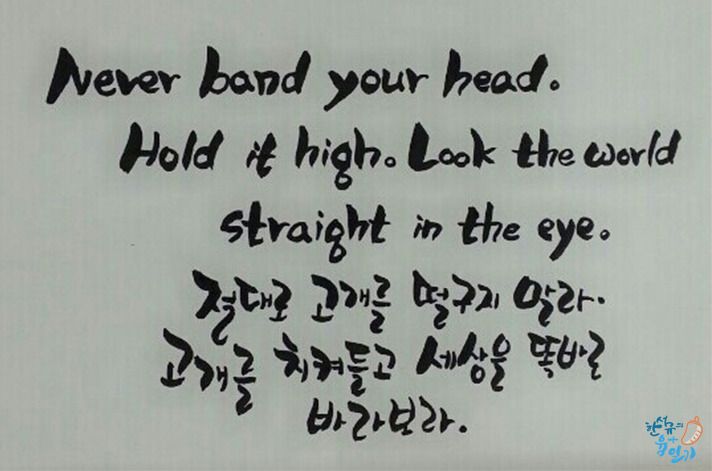 Never band your head.
Hold it high. Look the world
straight in the eye.
절대로 고개를 떨구지 말라.
고개를 치켜들고 세상을 똑바로
바라보라.
한석규의